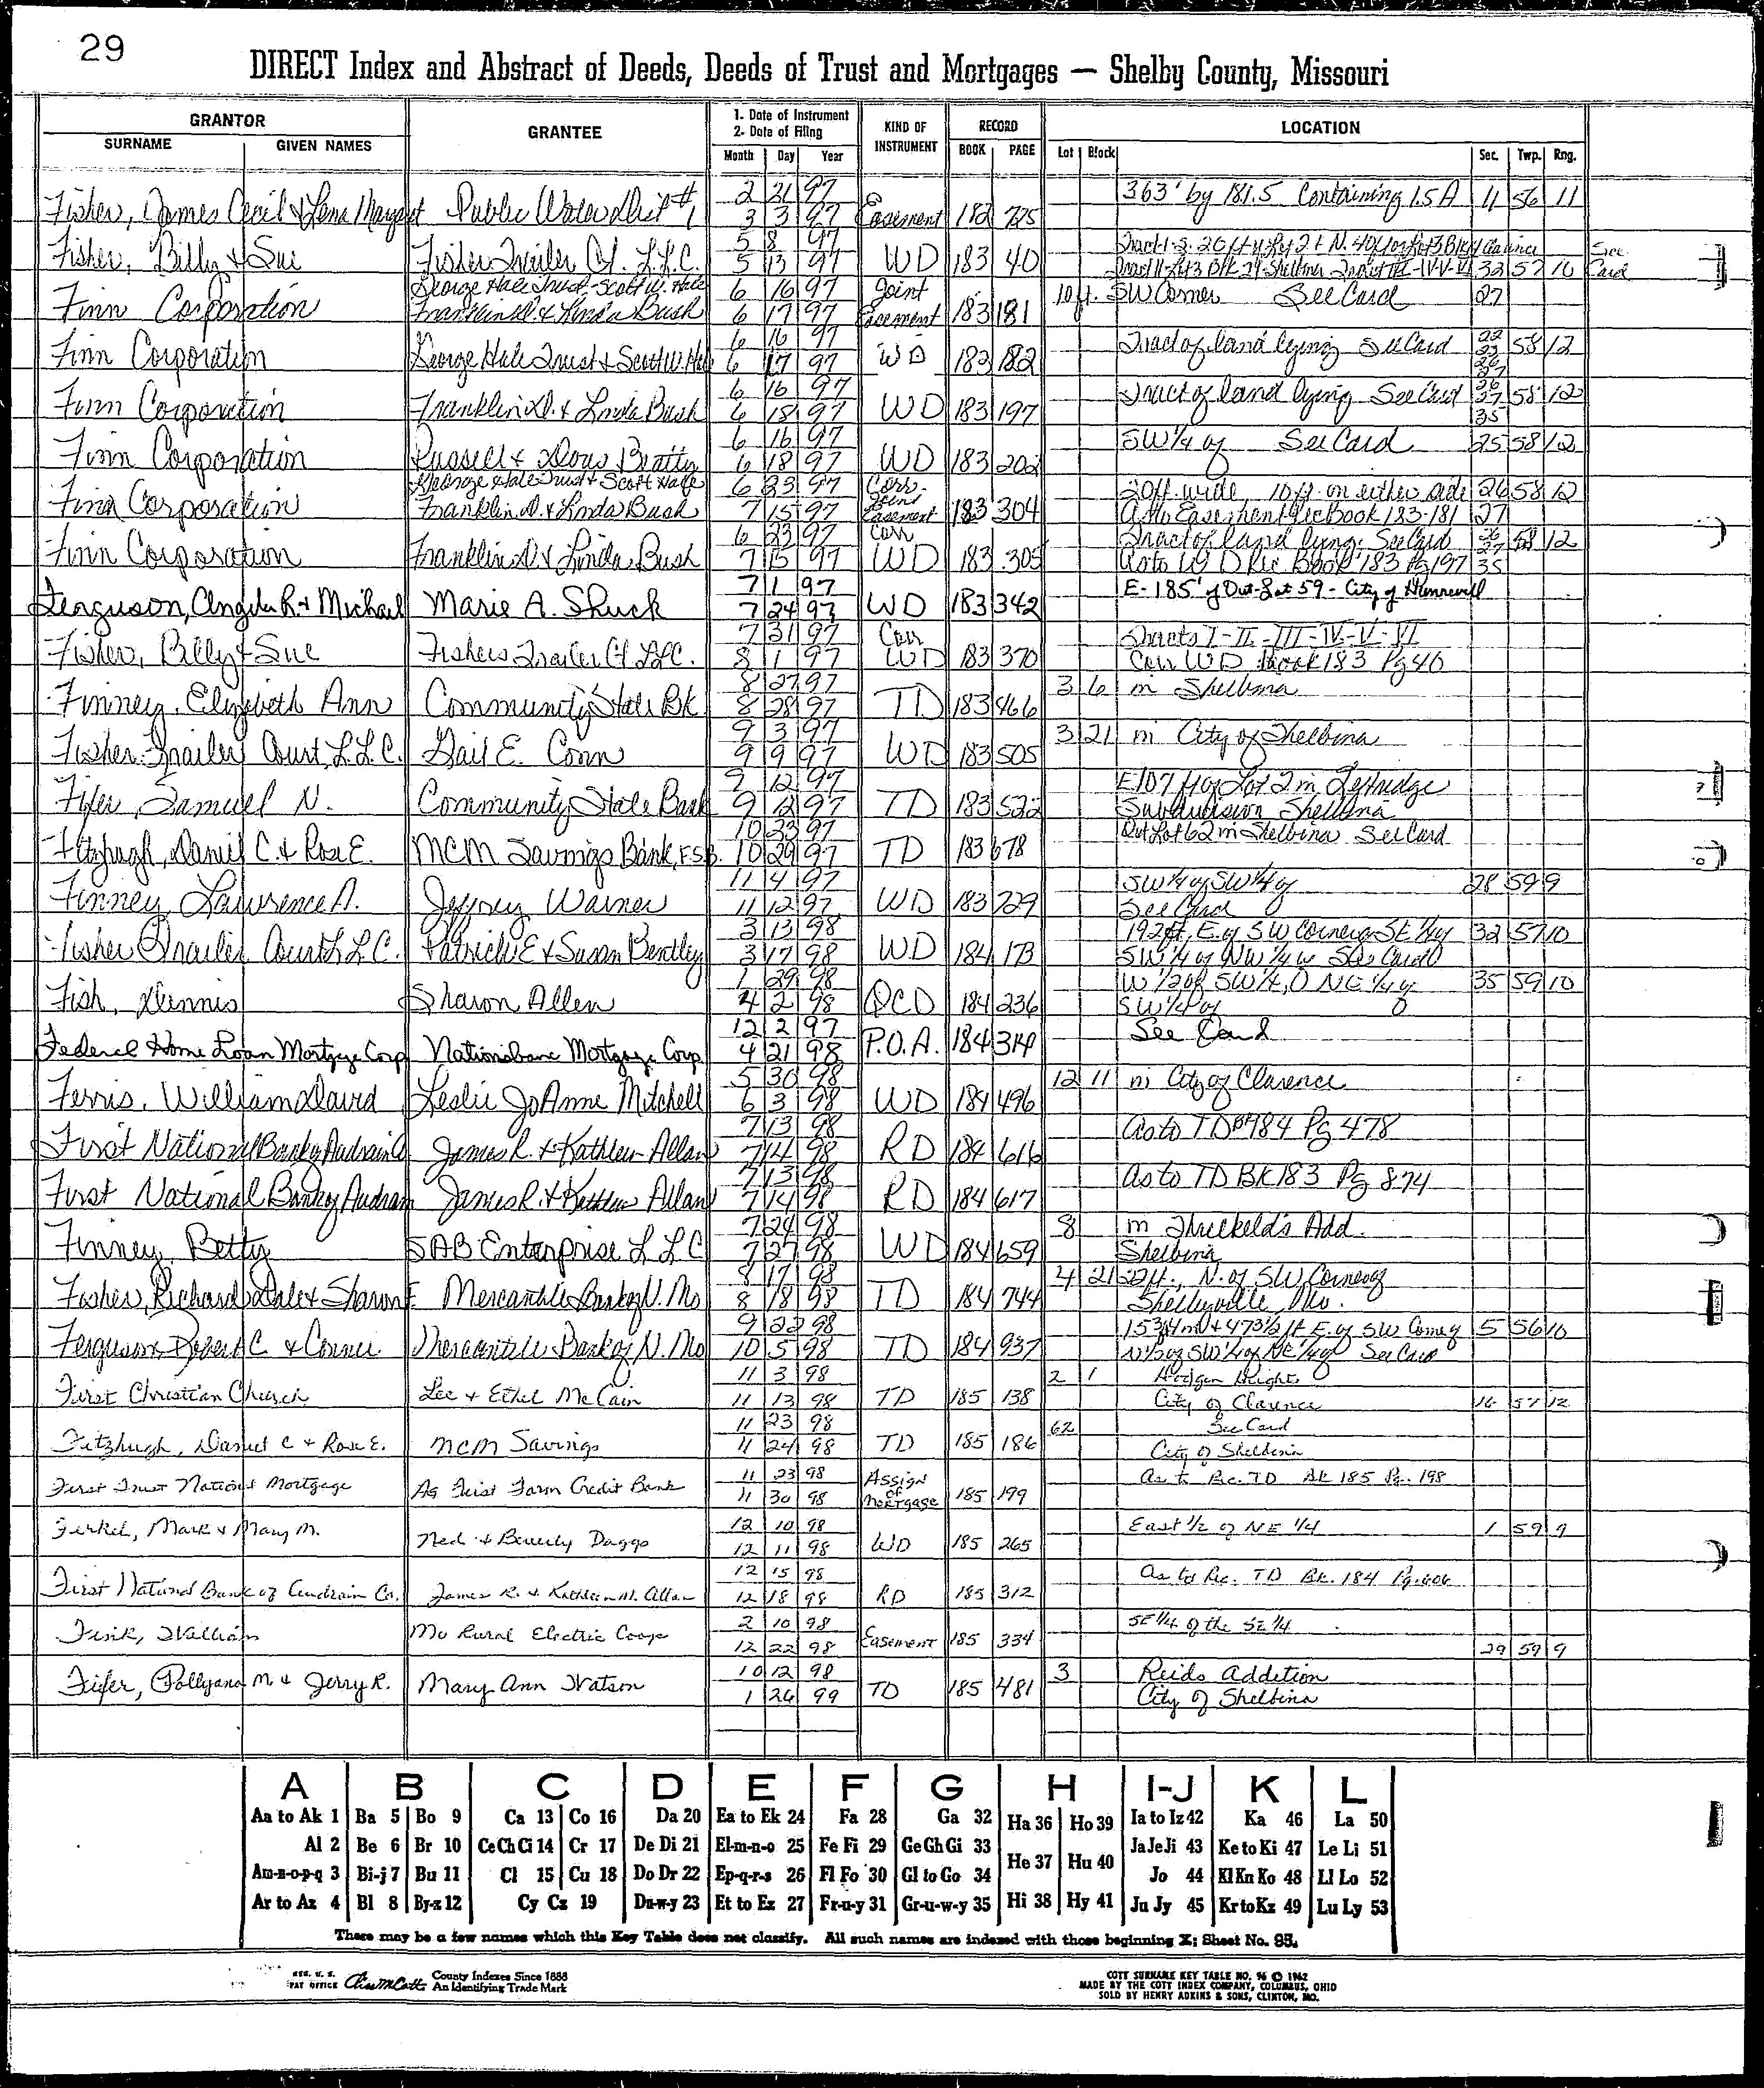 29
DIRECT Index and Abstract of Deeds, Deeds of Trust and Mortgages — Shelby County, Missouri
GRANTOR
SURNAME GIVEN NAMES
GRANTEE
1. Date of Instrument
2. Date of Filing
Month Day Year
KIND OF INSTRUMENT
RECORD
BOOK PAGE
LOCATION
Lot Block Sec. Twp. Rng.
2 21 97 363' by 181.5 Containing 1.5 A 11 56 11
Fisher, James Cecil & Lena Margaret Public Water Dist #1 3 3 97 Easement 182 725
5 8 97
Fisher, Billy & Sue Fisher Trailer Ct. L.L.C. 5 13 97 WD 183 40 32 57 10 See Card
George Hale Trust, Scott W. Hale 6 16 97 Joint 10 ft. SW Corner See Card 27
Finn Corporation Franklin D. & Linda Bush 6 17 97 Easement 183 181
6 16 97 Tract of land lying See Card 22 23 26 27 58 12
Finn Corporation George Hale Trust & Scott W. Hale 6 17 97 WD 183 182
6 16 97 Tract of land lying See Card 26 27 35 58 12
Finn Corporation Franklin D. & Linda Bush 6 18 97 WD 183 197
6 16 97 SW 1/4 of See Card 25 58 12
Finn Corporation Russell & Doris Beatty 6 18 97 WD 183 202
George Hale Trust & Scott Hale 6 23 97 Corr. Joint 20 ft. wide, 10 ft. on either side 26 58 12
Finn Corporation Franklin D. & Linda Bush 7 15 97 Easement 183 304 As to Easement Rec Book 183-181 27
6 23 97 Corr Tract of land lying. See Card 26 27 58 12
Finn Corporation Franklin D. & Linda Bush 7 15 97 WD 183 305 As to WD Rec Book 183 Pg 197 35
7 1 97 E-185' of Out-Lot 59 - City of Hunnewell
Ferguson, Angela R. & Michael Marie A. Shuck 7 24 97 WD 183 342
7 31 97 Corr Tracts I-II-III-IV-V-VI
Fisher, Billy & Sue Fishers Trailer Ct LLC. 8 1 97 WD 183 370 Corr WD Book 183 Pg 40
8 27 97 3 6 in Shelbina
Finney, Elizabeth Ann Community State Bk 8 28 97 TD 183 466
9 3 97 3 21 in City of Shelbina
Fisher Trailer Court, L.L.C. Gail E. Conn 9 9 97 WD 183 505
9 12 97 E107 ft of Lot 2 in
Fifer, Samuel N. Community State Bank 9 12 97 TD 183 522 Subdivision Shelbina
10 23 97 Out Lot 62 in Shelbina See Card
Fitzhugh, Daniel C. & Rose E. MCM Savings Bank, F.S.B. 10 29 97 TD 183 678
11 4 97 SW 1/4 of SW 1/4 of 28 59 9
Finney, Lawrence A. Jeffrey Warner 11 12 97 WD 183 729 See Card
3 13 98 192 ft. E. of SW Corner of SE 1/4 of 32 57 10
Fisher Trailer Court L.L.C. Patrick E & Susan Bentley 3 17 98 WD 184 173 SW 1/4 of NW 1/4 See Card
1 29 98 W 1/2 of SW 1/4, NE 1/4 of 35 59 10
Fish, Dennis Sharon Allen 4 2 98 QCD 184 236 SW 1/4 of
12 2 97 See Card
Federal Home Loan Mortgage Corp Nationsbanc Mortgage Corp. 4 21 98 P.O.A. 184 314
5 30 98 12 11 in City of Clarence
Ferris, William David Leslie JoAnne Mitchell 6 3 98 WD 184 496
7 13 98 As to TD Bk 184 Pg 478
First National Bank of Audrain Co James R. & Kathleen Allan 7 14 98 RD 184 616
7 13 98 As to TD BK 183 Pg 874
First National Bank of Audrain James R. & Kathleen Allan 7 14 98 RD 184 617
7 24 98 8 in Threlkeld's Add.
Finney, Betty SAB Enterprise L L C 7 27 98 WD 184 659 Shelbina
8 17 98 4 21 ft., N. of SW Corner of
Fisher, Richard Dale & Sharon F. Mercantile Bank of N. Mo 8 18 98 TD 184 744 Shelbyville, Mo.
9 22 98 E. of SW Corner of 5 56 10
Ferguson, Robert C. & Connie Mercantile Bank of N. Mo 10 5 98 TD 184 937 N 1/2 of SW 1/4 of NE 1/4 of See Card
11 3 98 2 1 Hodgen Heights
First Christian Church Lee & Ethel McCain 11 13 98 TD 185 138 City of Clarence 16 57 12
11 23 98 62 See Card
Fitzhugh, Daniel C & Rose E. MCM Savings 11 24 98 TD 185 186 City of Shelbina
11 23 98 Assign As to Rec. TD Bk 185 Pg. 198
First Trust National Mortgage Ag First Farm Credit Bank 11 30 98 of Mortgage 185 199
12 10 98 East 1/2 of NE 1/4 1 59 9
Ferkel, Mark & Mary M. Ned & Beverly Daggs 12 11 98 WD 185 265
12 15 98 As to Rec. TD Bk. 184 Pg. 606
First National Bank of Audrain Co. James R. & Kathleen M. Allan 12 18 98 RD 185 312
2 10 98 SE 1/4 of the SE 1/4
Fink, William Mo Rural Electric Coop 12 22 98 Easement 185 334 29 59 9
10 12 98 3 Reids Addition
Fifer, Pollyana M. & Jerry R. Mary Ann Watson 1 26 99 TD 185 481 City of Shelbina
A B C D E F G H I-J K L
Aa to Ak 1 Ba 5 Bo 9 Ca 13 Co 16 Da 20 Ea to Ek 24 Fa 28 Ga 32 Ha 36 Ho 39 Ia to Iz 42 Ka 46 La 50
Al 2 Be 6 Br 10 Ce Ch Ci 14 Cr 17 De Di 21 El-m-n-o 25 Fe Fi 29 Ge Gh Gi 33 He 37 Hu 40 Ja Je Ji 43 Ke to Ki 47 Le Li 51
Am-n-o-p-q 3 Bi-j 7 Bu 11 Cl 15 Cu 18 Do Dr 22 Ep-q-r-s 26 Fl Fo 30 Gl to Go 34 Jo 44 Kl Kn Ko 48 Ll Lo 52
Ar to Az 4 Bl 8 By-z 12 Cy Cz 19 Du-w-y 23 Et to Ez 27 Fr-u-y 31 Gr-u-w-y 35 Hi 38 Hy 41 Ju Jy 45 Kr to Kz 49 Lu Ly 53
There may be a few names which this Key Table does not classify. All such names are indexed with those beginning X; Sheet No. 95.
REG. U. S. PAT OFFICE County Indexes Since 1888 An Identifying Trade Mark
COTT SURNAME KEY TABLE NO. 96 © 1962
MADE BY THE COTT INDEX COMPANY, COLUMBUS, OHIO
SOLD BY HENRY ADKINS & SONS, CLINTON, MO.